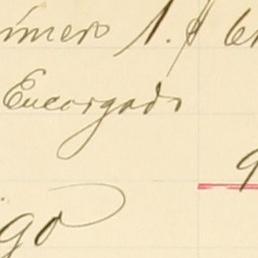 imero 1. $ 6
Encargado
9
igo